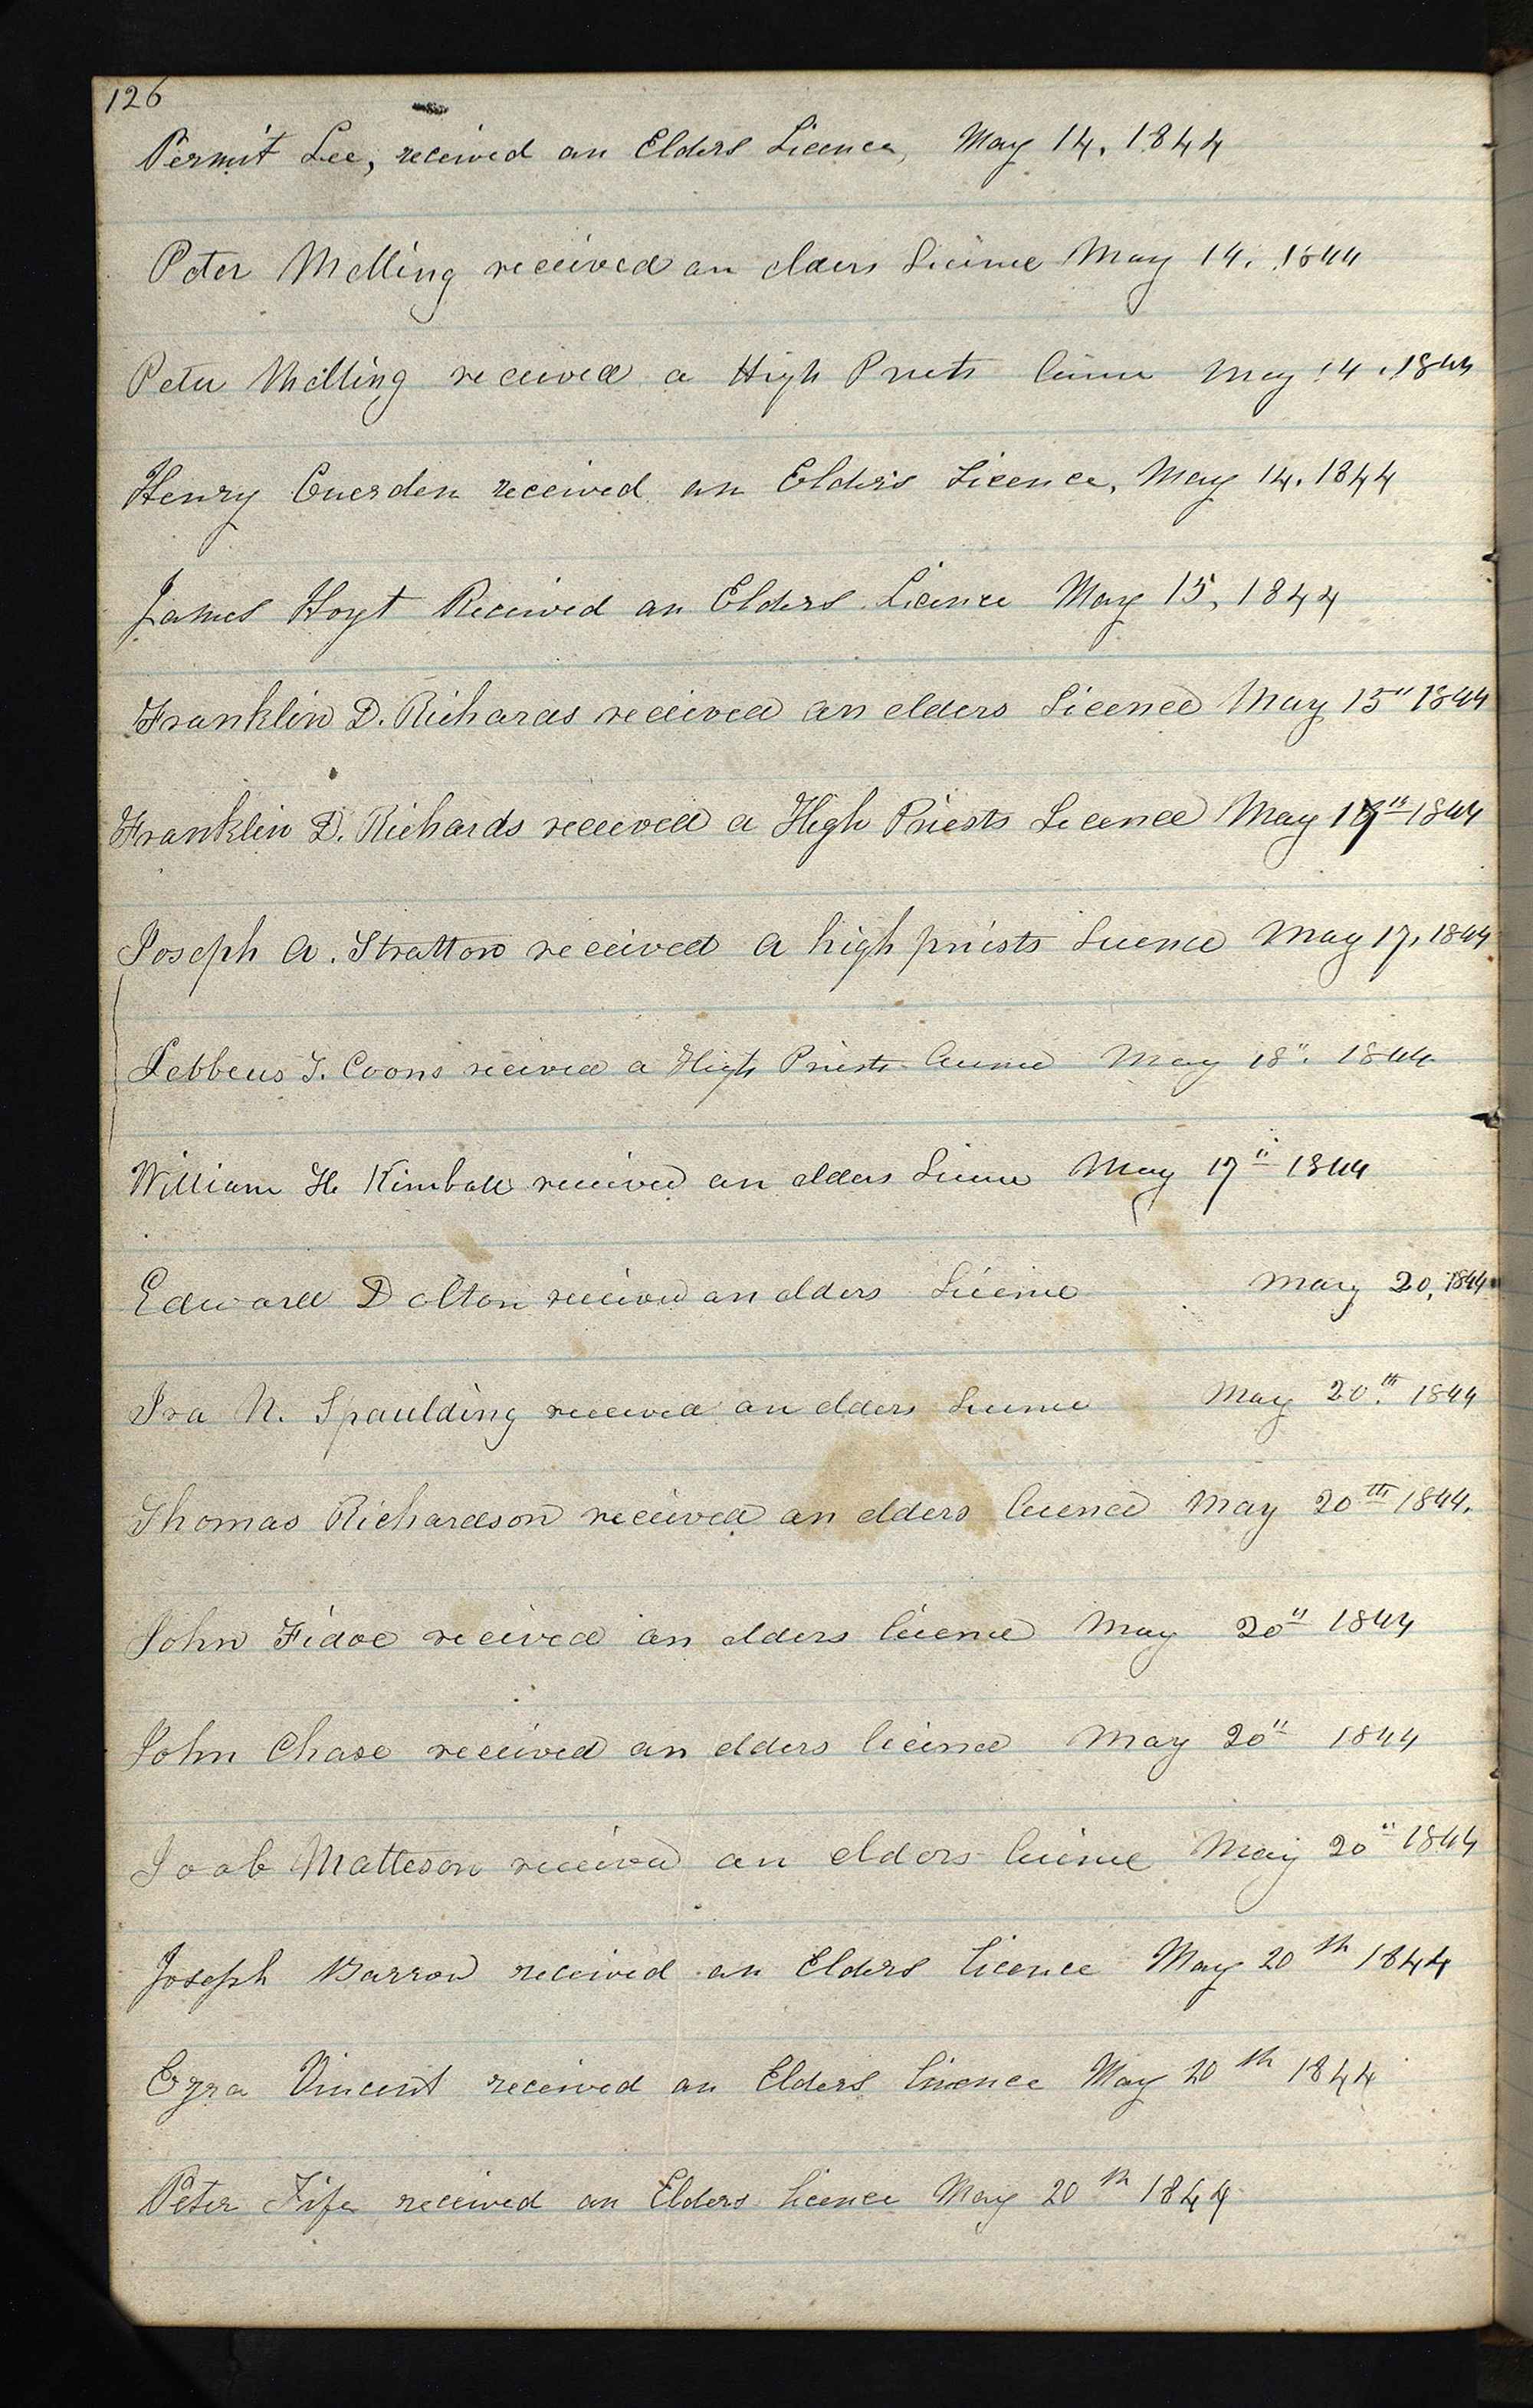 126
Permit Lee, received an Elders Licence, May 14, 1844
Peter Melling received an elders Licence May 14, 1844
Peter Melling received a High Priets licence May 14, 1844
Henry Cuerden received an Elder's Licence, May 14, 1844
James Hoyt Received an Elders Licence May 15, 1844
Franklin D. Richards received an elders Licence May 15" 1844
Franklin D. Richards received a High Priests Licence May 1844
Joseph A. Stratton received a high priests Licence May 17, 1844
Lebbeus T. Coons received a High Priests licence May 18", 1844
William H. Kimball received an elders Licence May 17" 1844
Edward Dalton received an elders Licence May 20, 1844
Ira N. Spaulding received an elders Licence May 20th. 1844
Thomas Richardson received an elders licence May 20th 1844.
John Fidoe received an elders licence May 20" 1844
John Chase received an elders licence May 20" 1844
Joab Matteson received an elders licence May 20" 1844
Joseph Barrow received an Elders licence May 20th 1844
Ezra Vincent received an Elders licence May 20th 1844
Peter Fife received an Elders licence May 20th 1844